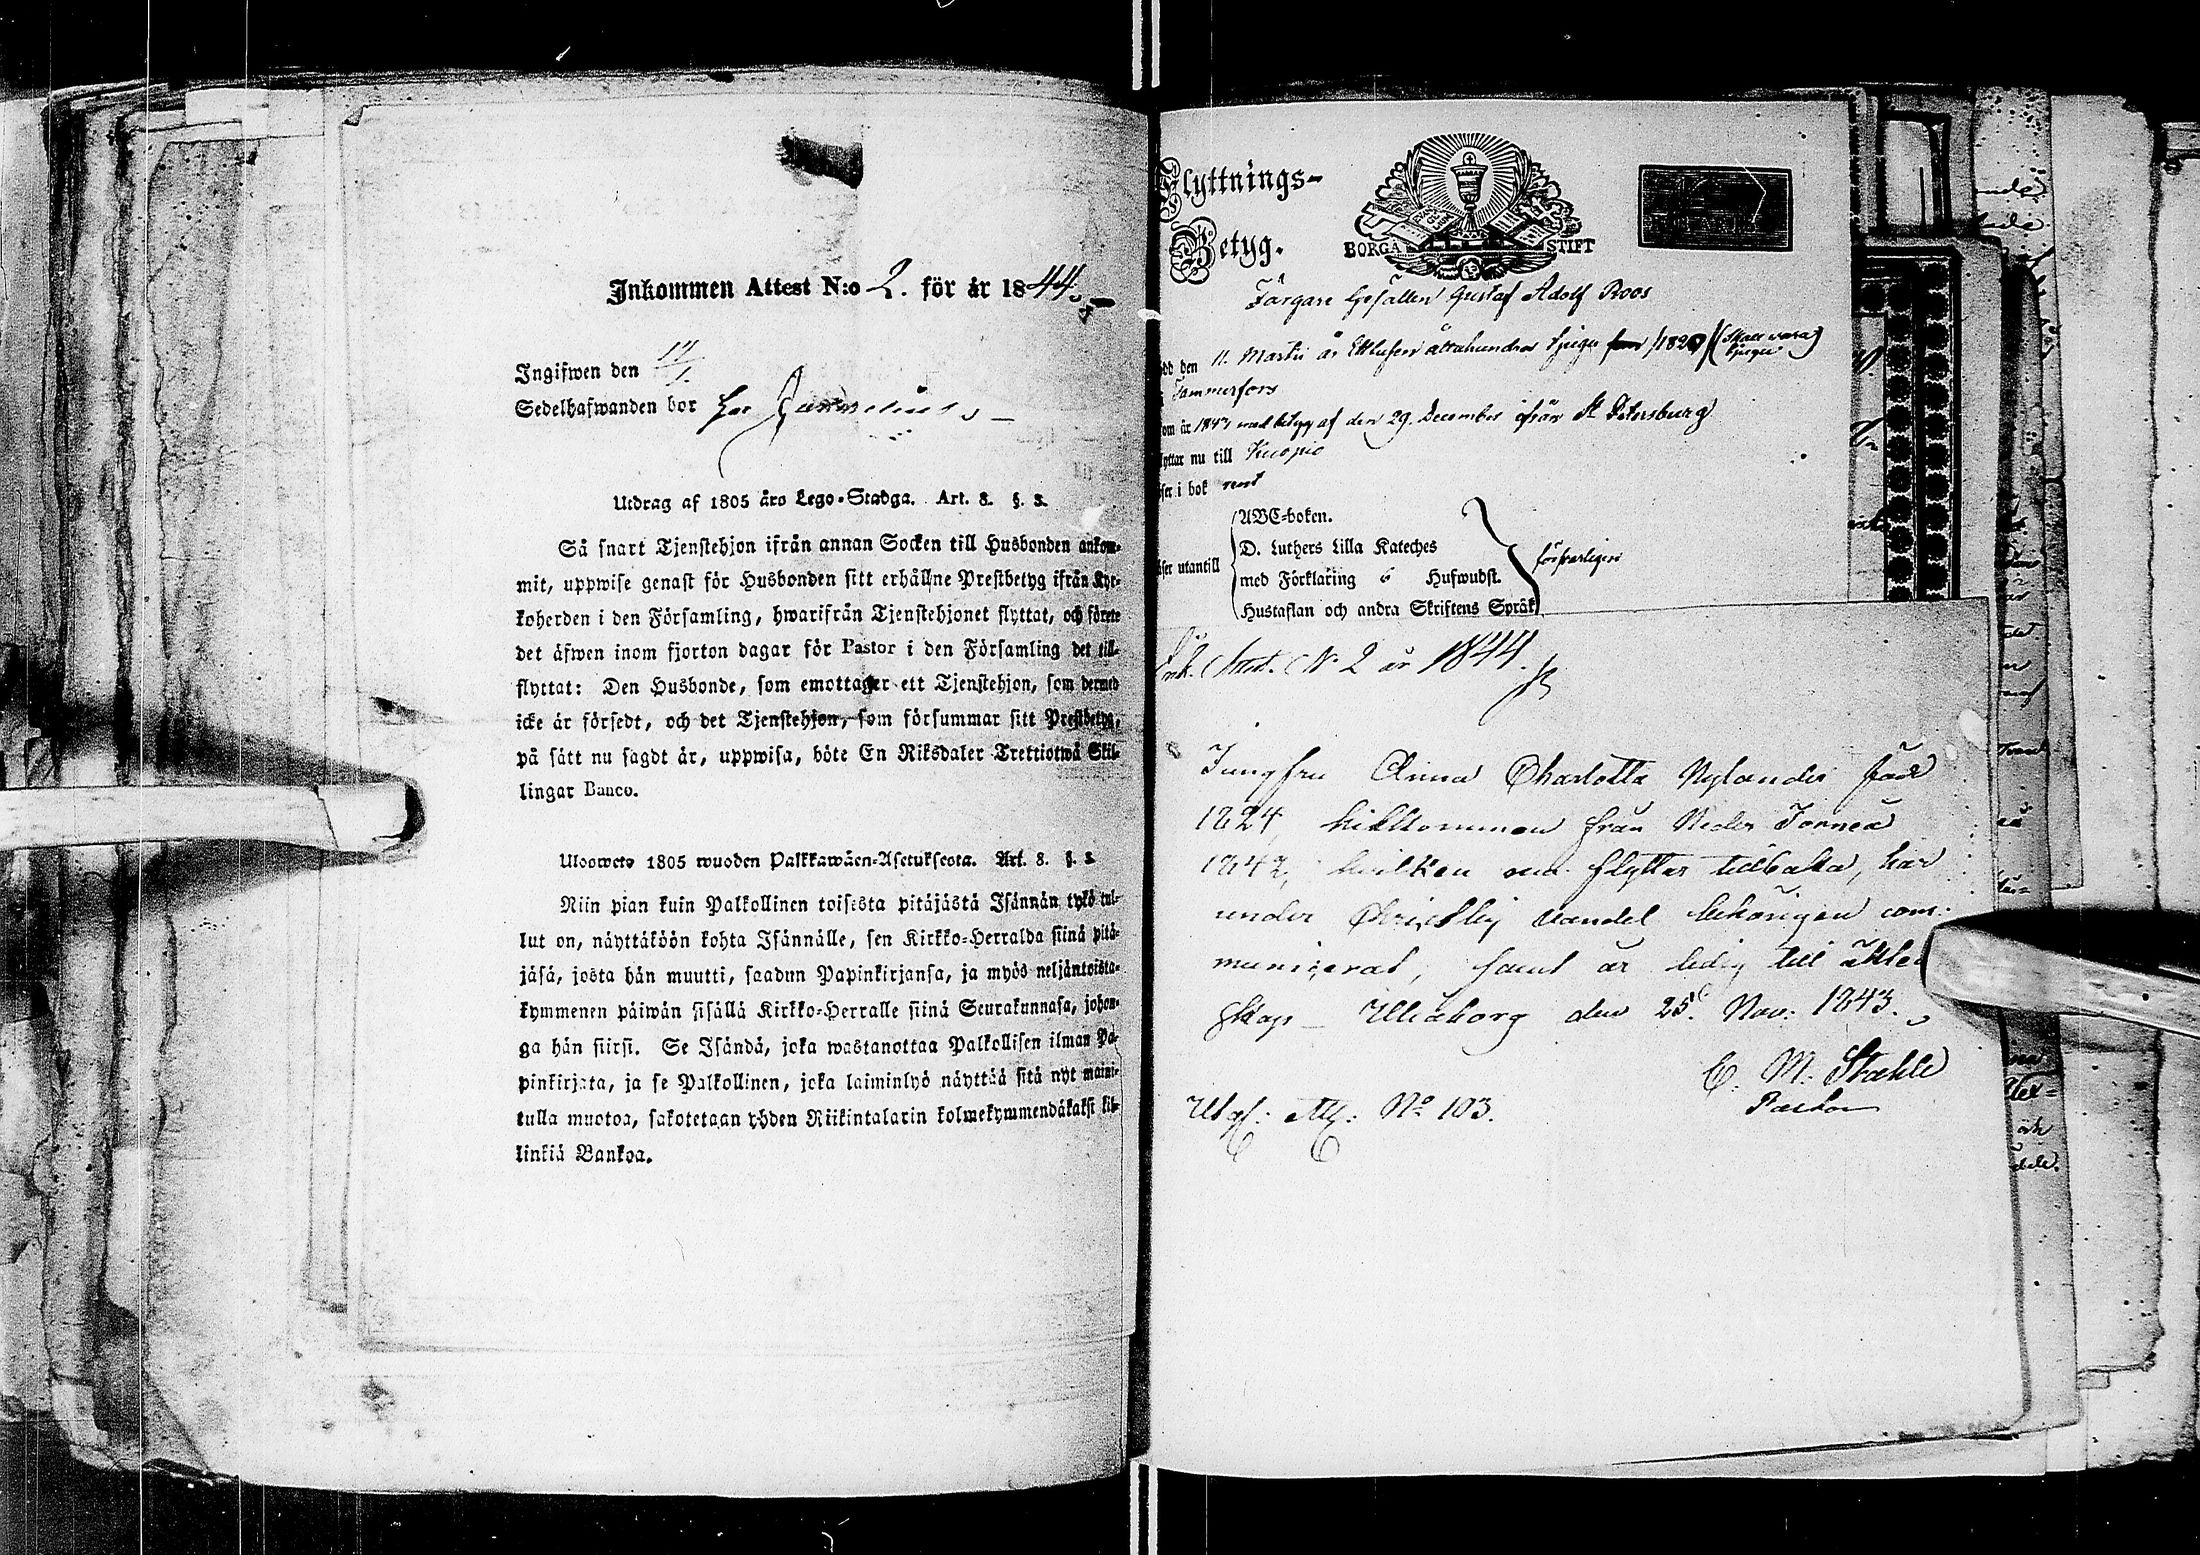 Inkommen Attest N:o 2. för år 1844.
Ingifwen den 17/1.
Sedelhafwanden bor hos
Utdrag af 1805 års Lego-Stadga. Art. 8. §. 3.
Så snart Tjenstehjon ifrån annan Socken till Husbonden ankom-
mit, uppwise genast för Husbonden sitt erhållne Prestbetyg ifrån Kyr-
koherden i den Församling, hwarifrån Tjenstehjonet flyttat, och förete
det äfwen inom fjorton dagar för Pastor i den Församling det till-
flyttat: Den Husbonde, som emottager ett Tjenstehjon, som dermed
icke är försedt, och det Tjenstehjon, som försummar sitt Prestbetyg,
på sätt nu sagdt är, uppwisa, böte En Riksdaler Trettiotwå Skil-
lingar Banco.
Uloswetv 1805 wuoden Palkkawäen-Asetuksesta. Art. 8. §. 3.
Niin pian kuin Palkollinen toisesta pitäjästä Isännän tykö tul-
lut on, näyttäköön kohta Isännälle, sen Kirkko-Herralda siinä pitä-
jäsä, josta hän muutti, saadun Papinkirjansa, ja myös neljäntoista-
kymmenen päiwän sisällä Kirkko-Herralle siinä Seurakunnasa, johon-
ga hän siirsi. Se Isändä, joka wastanottaa Palkollisen ilman Pa-
pinkirjata, ja se Palkollinen, joka laiminlyö näyttää sitä nyt maini-
tulla muotoa, sakotetaan yhden Riikintalarin kolmekymmendäkaksi kil-
linkiä Bankoa.
Flyttnings-
Betyg.
BORGÅ STIFT
Färgare Gesällen Gustaf Adolf Roos
född den 11. Martii år Ettusen åttahundra tjugu fem /1820/ (Skall vara tjugu)
i Tammerfors
kom år 1843 med betyg af den 29. December ifrån St Petersburg
flyttar nu till Kuopio
läser i bok rent
läser utantill
ABC-boken.
D. Luthers Lilla Kateches
med Förklaring 6 Hufwudst.
Hustaflan och andra Skriftens Språk
försvarligen
Ink. Attest. N 2 år 1844.
Jungfru Anna Charlotta Nylander född
1824, hitkommen från Neder Torneå
1842, hvilken nu flyttar tillbaka, har
under Christlig vandel behörigen com-
municerat, samt är ledig till äkten-
skap – Uleåborg den 25. Nov. 1843.
C. M. Stahle
Pastor
Utgf. Att. No 103.